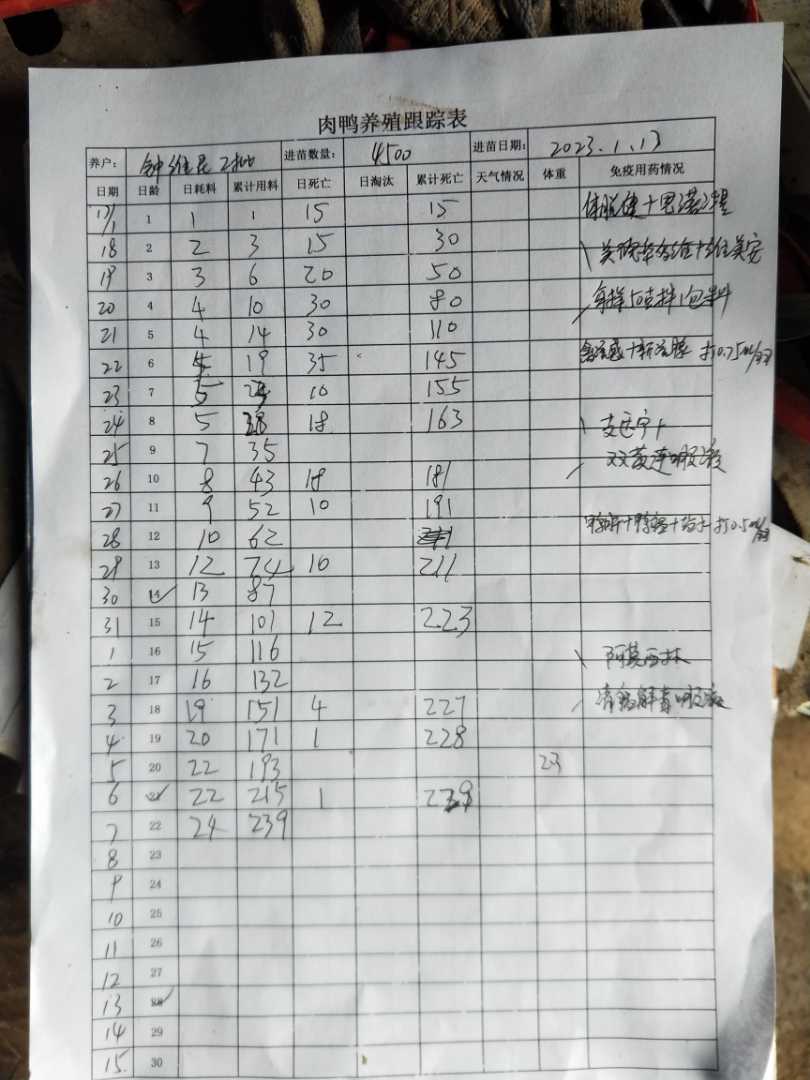 肉鸭养殖跟踪表
养户: 钟维昆 2批 进苗数量: 4500 进苗日期: 2023.1.17
日期 日龄 日耗料 累计用料 日死亡 日淘汰 累计死亡 天气情况 体重 免疫用药情况
17/1 1 1 1 15 15
18 2 2 3 15 30
19 3 3 6 20 50
20 4 4 10 30 80 每样50克拌1包料
21 5 4 14 30 110
22 6 5 19 35 145 打0.75ml/只
23 7 5 24 10 155
24 8 5 28 18 163
25 9 7 35 双黄连口服液
26 10 8 43 18 181
27 11 9 52 10 191
28 12 10 62 打0.5ml/只
29 13 12 74 10 211
30 14 13 87
31 15 14 101 12 223
1 16 15 116 阿莫西林
2 17 16 132
3 18 19 151 4 227 清瘟解毒口服液
4 19 20 171 1 228
5 20 22 193 23
6 21 22 215 1 229
7 22 24 239
8 23
9 24
10 25
11 26
12 27
13 28
14 29
15 30